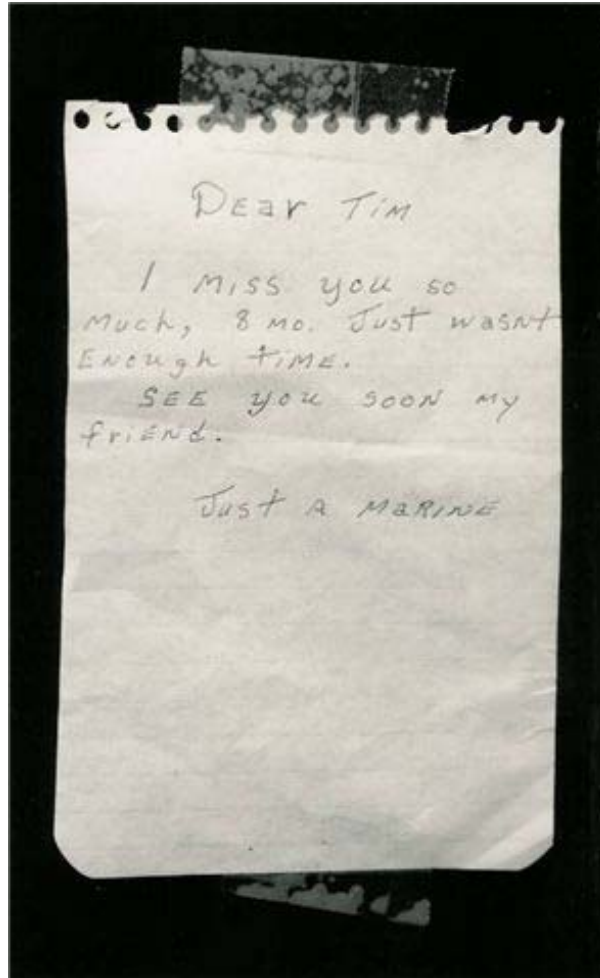 Dear Tim
I miss you so
much, 8 mo. Just wasnt
Enough time.
SEE you soon my
friend.
Just a Marine